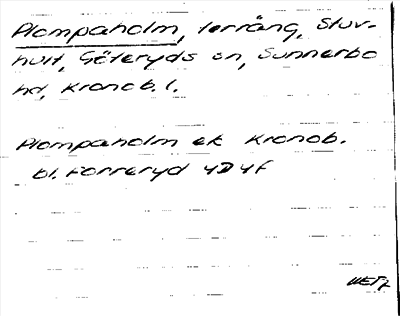 Plompaholm, terräng, Stuv-
hult, Göteryds sn, Sunnerbo
hd, Kronob. l.
Plompaholm ek Kronob.
bl. Torreryd 4D4f